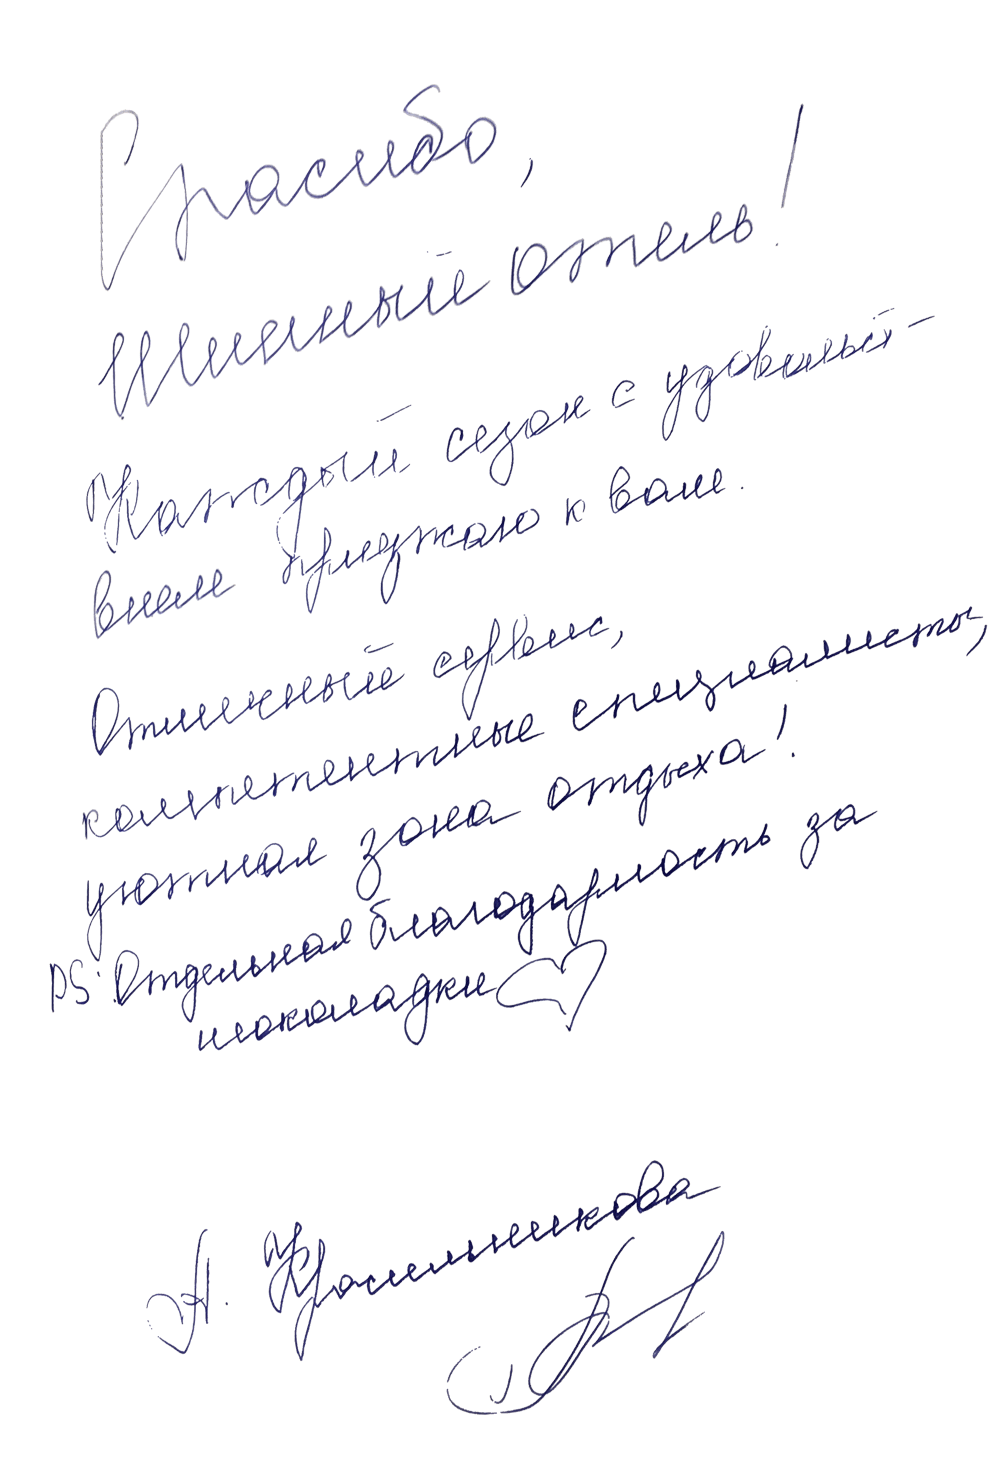 Спасибо,
Шинный отель!
Каждый сезон с удовольст-
вием приезжаю к вам.
Отличный сервис,
компетентные специалисты,
уютная зона отдыха!
PS: Отдельная благодарность за
шоколадки
А. Красильникова